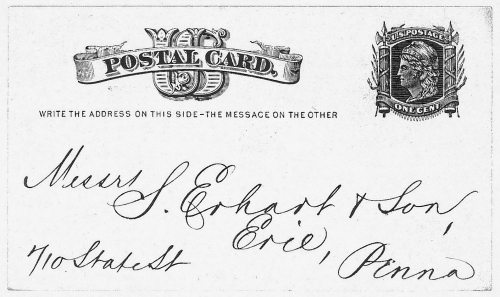 US
POSTAL CARD.
U.S. POSTAGE
ONE CENT
WRITE THE ADDRESS ON THIS SIDE–THE MESSAGE ON THE OTHER
Messrs S. Erhart & Son,
Erie,
710 State St Penna